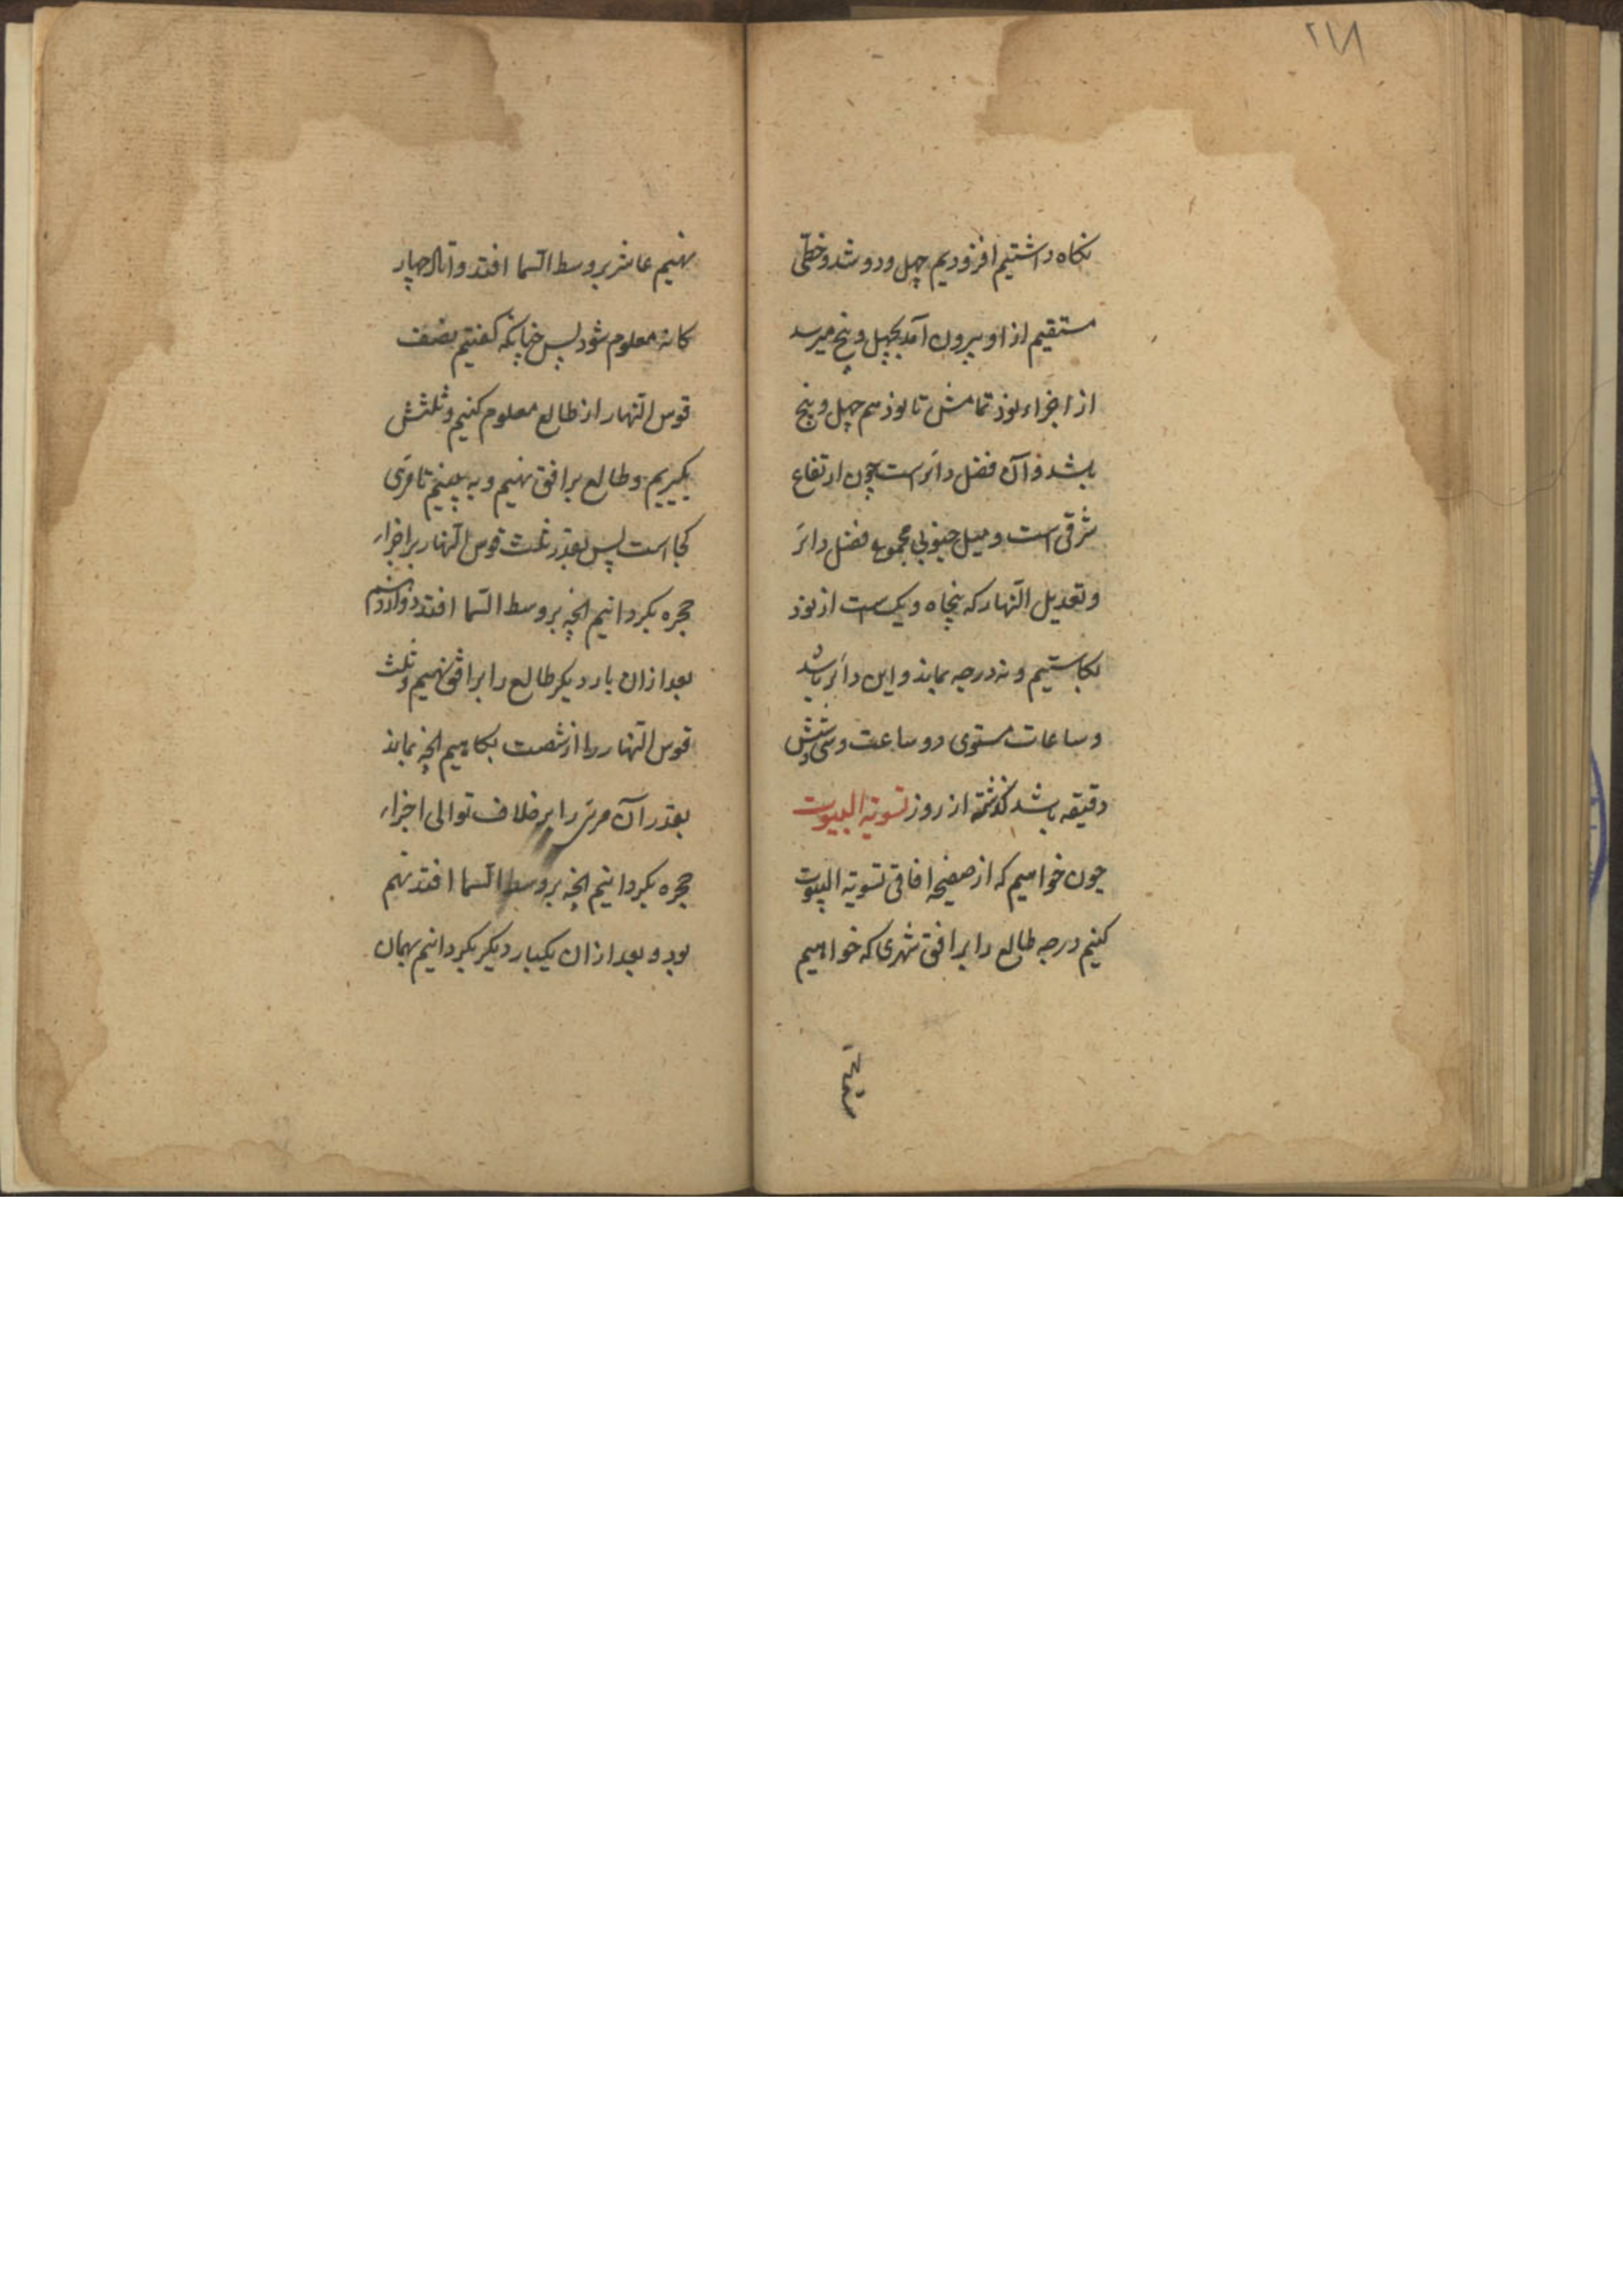 ۲۱۸
نكاه داشتيم افزوديم چهل ودو شد وخطى
مستقيم از او بيرون آمد بچهل وپنج ميرسد
از اجزاء نود تمامش تا نود هم چهل وپنج
باشد وآن فضل دائرست چون ارتفاع
شرقى است وميل جنوبى مجموع فضل دائر
وتعديل النهار كه پنجاه ويكست از نود
بكاستيم ونه درجه بماند واين دائر باشد
وساعات مستوى دو ساعت وسى وشش
دقيقه باشد گذشته از روز تسوية البيوت
چون خواهيم كه از صفيحه افاقى تسوية البيوت
كنيم درجه طالع را بر افق شهرى كه خواهيم
نهيم عاشر بر وسط السما افتد واوتاد چهار
كانه معلوم شود پس چنانكه گفتيم نصف
قوس النهار از طالع معلوم كنيم وثلثش
بگيريم وطالع بر افق نهيم وبه بينيم تا مرى
كجا است پس بقدر ثلث قوس النهار بر اجزاء
حجره بگردانيم انچه بر وسط السما افتد دوازدهم
بعد از ان بار ديگر طالع را بر افق نهيم وثلث
قوس النهار را از شصت بكاهيم انچه بماند
بقدر آن مرى را بر خلاف توالى اجزاء
حجره بگردانيم انچه بر وسط السما افتد نهم
بود وبعد از ان يكبار ديگر بگردانيم بهمان